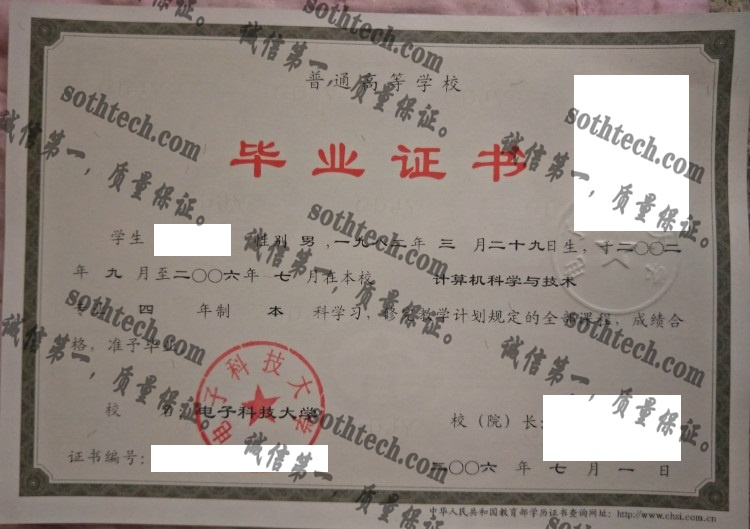 普通高等学校
毕业证书
学生 性别 男 ,一九八二年 三 月二十九日生，于二〇〇二
年 九 月至二〇〇六年 七 月在本校 计算机科学与技术
专业 四 年制 本 科学习，修完教学计划规定的全部课程，成绩合
格，准予毕业
校 名: 电子科技大学
校（院）长:
证书编号:
二〇〇六 年 七 月 一 日
中华人民共和国教育部学历证书查询网址: http://www.chsi.com.cn
电子科技大学
sothtech.com
诚信第一，质量保证。
sothtech.com
诚信第一，质量保证。
sothtech.com
诚信第一，质量保证。
sothtech.com
诚信第一，质量保证。
sothtech.com
诚信第一，质量保证。
sothtech.com
诚信第一，质量保证。
sothtech.com
诚信第一，质量保证。
sothtech.com
诚信第一，质量保证。